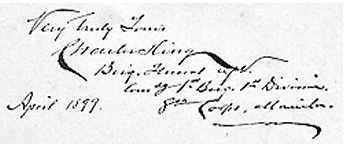 Very truly Yours
Charles King
Brig. Genl. U.S.V.
Comdg 1st Brig. 1st Division
April 1899. 8th Corps, Manila.